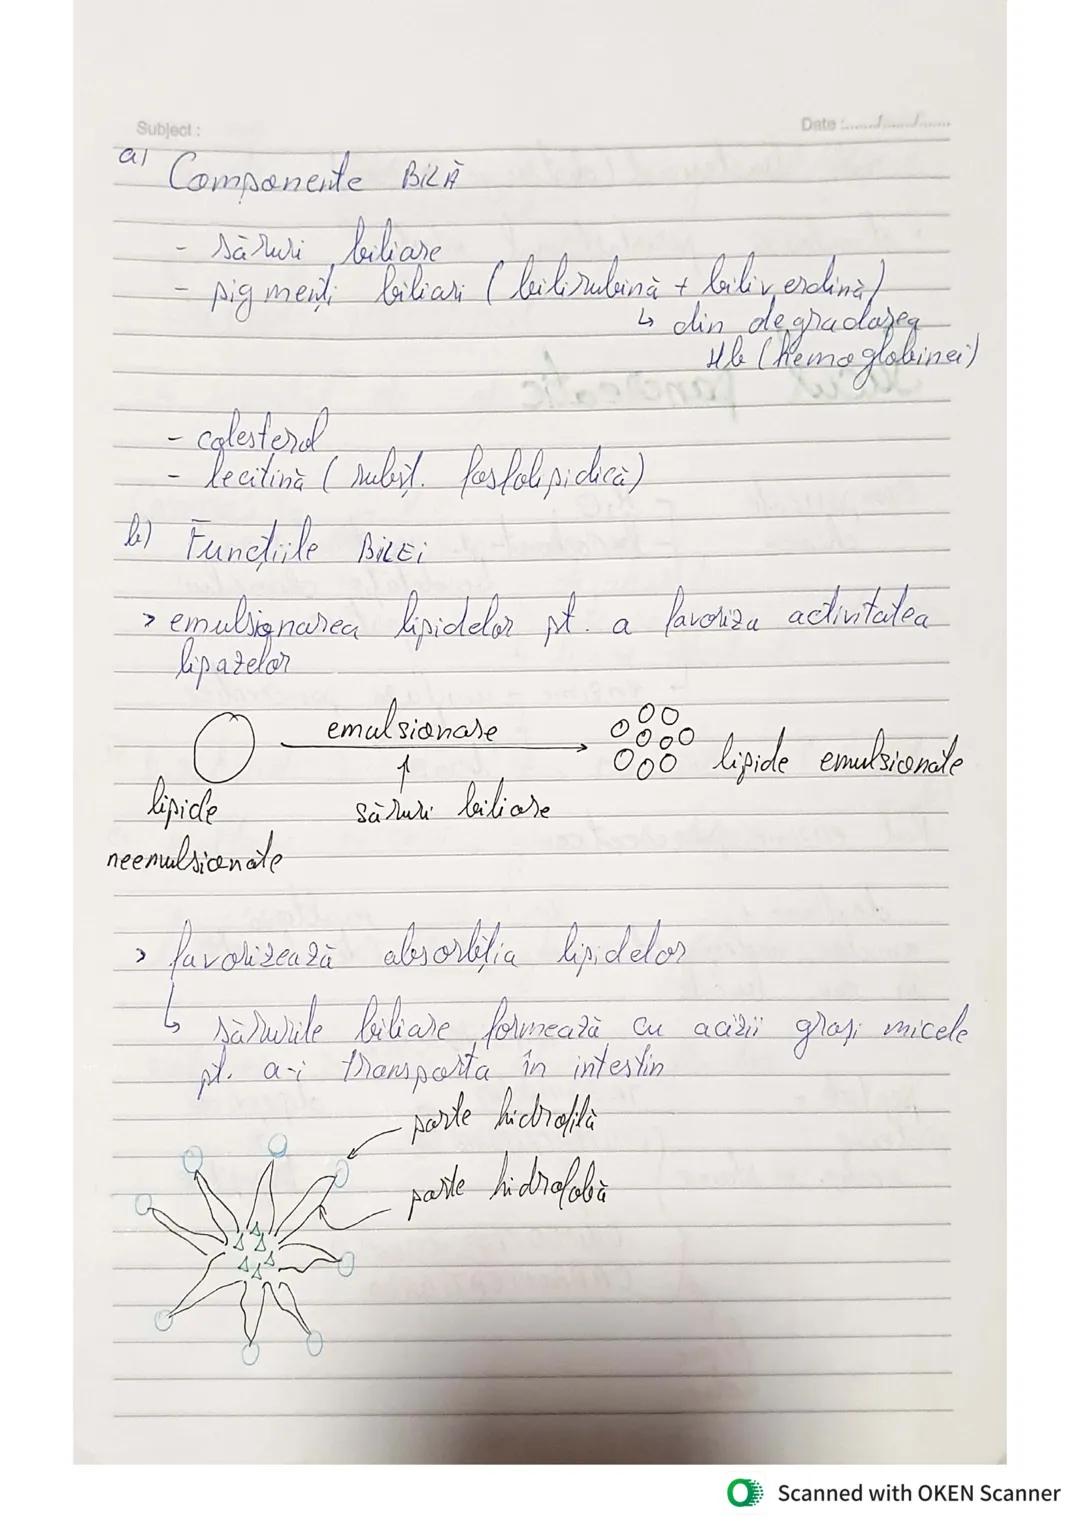 Subject :
Date :......../......../........
a) Componente BILĂ
- săruri biliare
- pigmenți biliari ( bilirubină + biliverdină)
↳ din degradarea
Hb (hemoglobinei)
Sucul pancreatic
- colesterol
- lecitină ( subst. fosfolipidică)
b) Funcțiile BILEI
> emulsionarea lipidelor pt. a favoriza activitatea
lipazelor
emulsionare
lipide emulsionate
lipide
săruri biliare
neemulsionate
> favorizează absorbția lipidelor
↳ sărurile biliare formează cu acizii grași micele
pt. a-i transporta în intestin
parte hidrofilă
parte hidrofobă
Scanned with OKEN Scanner